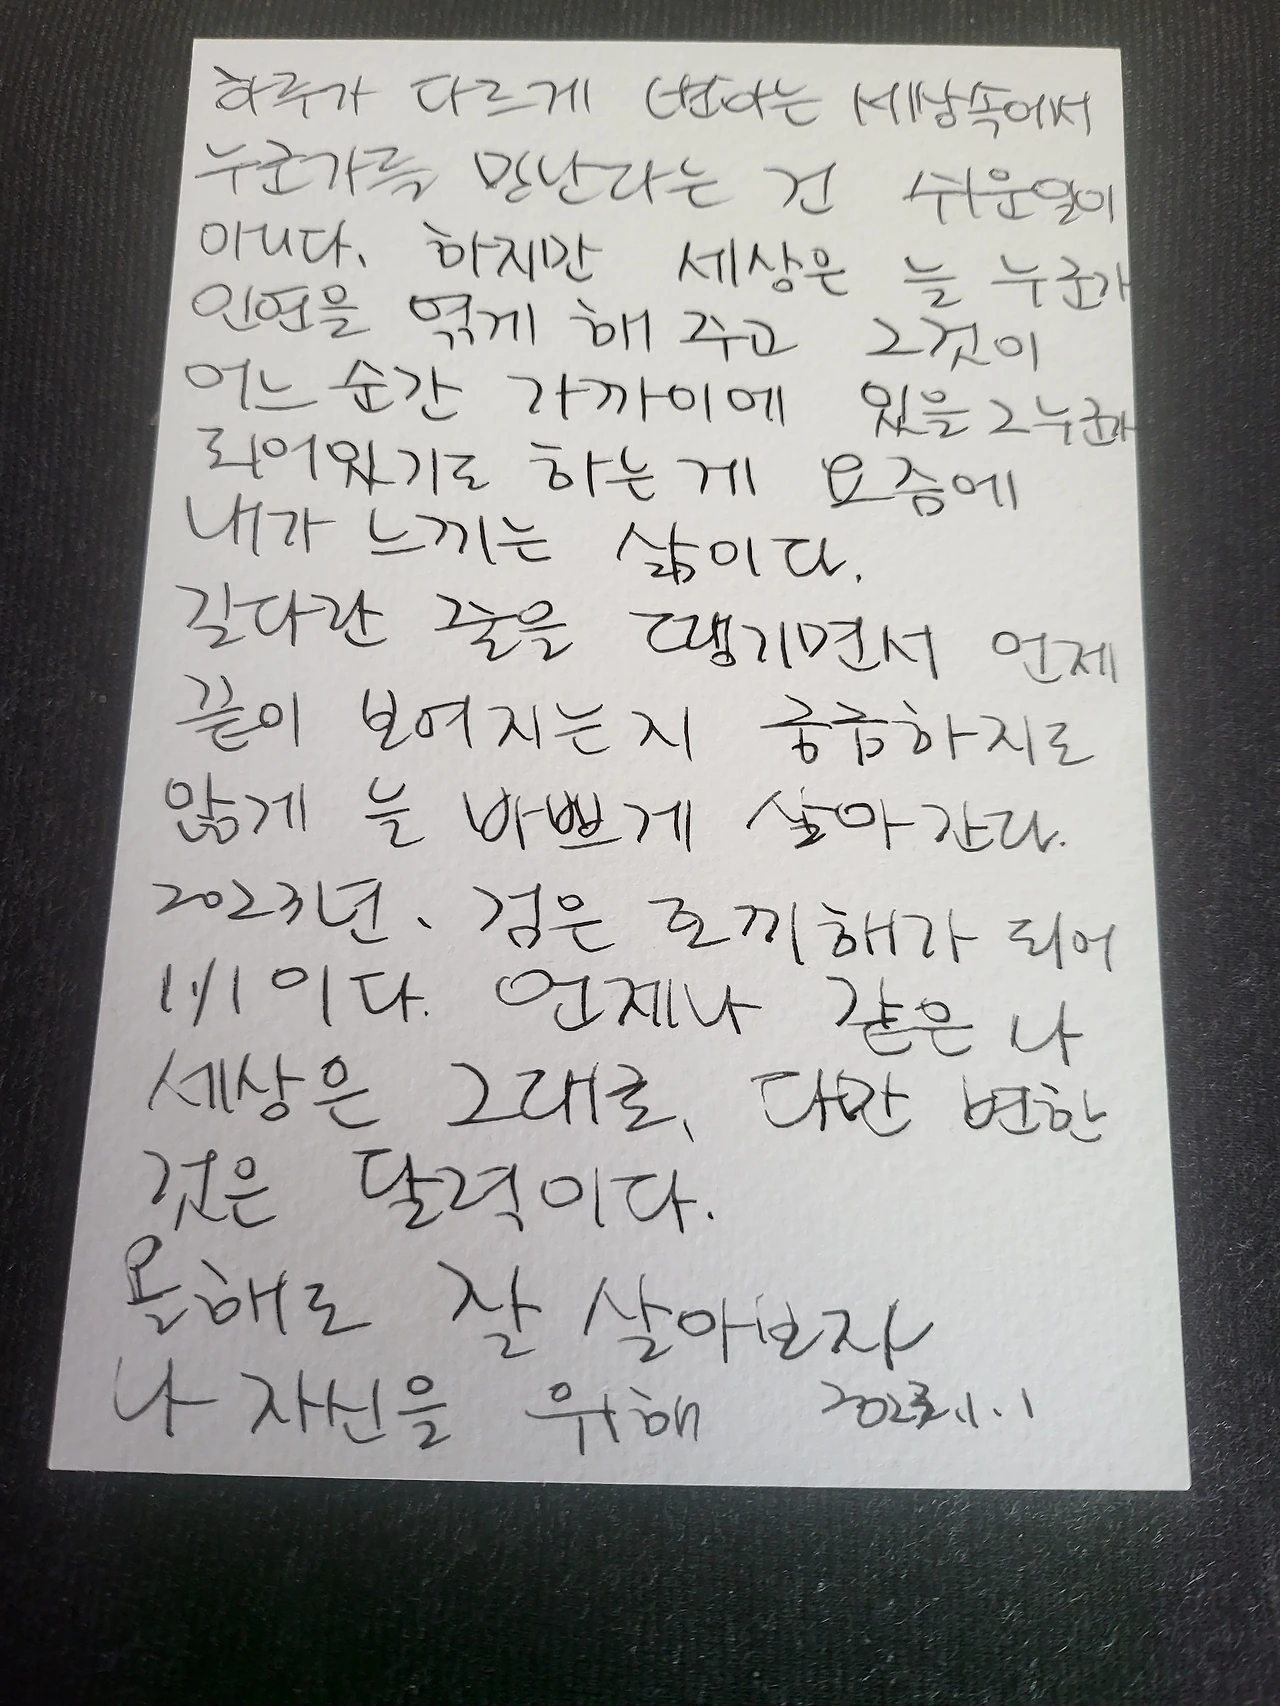 하루가 다르게 변하는 세상속에서
누군가를 만난다는 건 쉬운일이
아니다. 하지만 세상은 늘 누군가
인연을 엮게 해 주고 그것이
어느 순간 가까이에 있을 그 누군가
되어있기도 하는 게 요즘에
내가 느끼는 삶이다.
길다란 줄을 땡기면서 언제
끝이 보여지는지 궁금하지도
않게 늘 바쁘게 살아간다.
2023년, 검은 토끼해가 되어
1/1이다. 언제나 같은 나
세상은 그대로, 다만 변한
것은 달력이다.
올해도 잘 살아보자
나 자신을 위해 2023.1.1